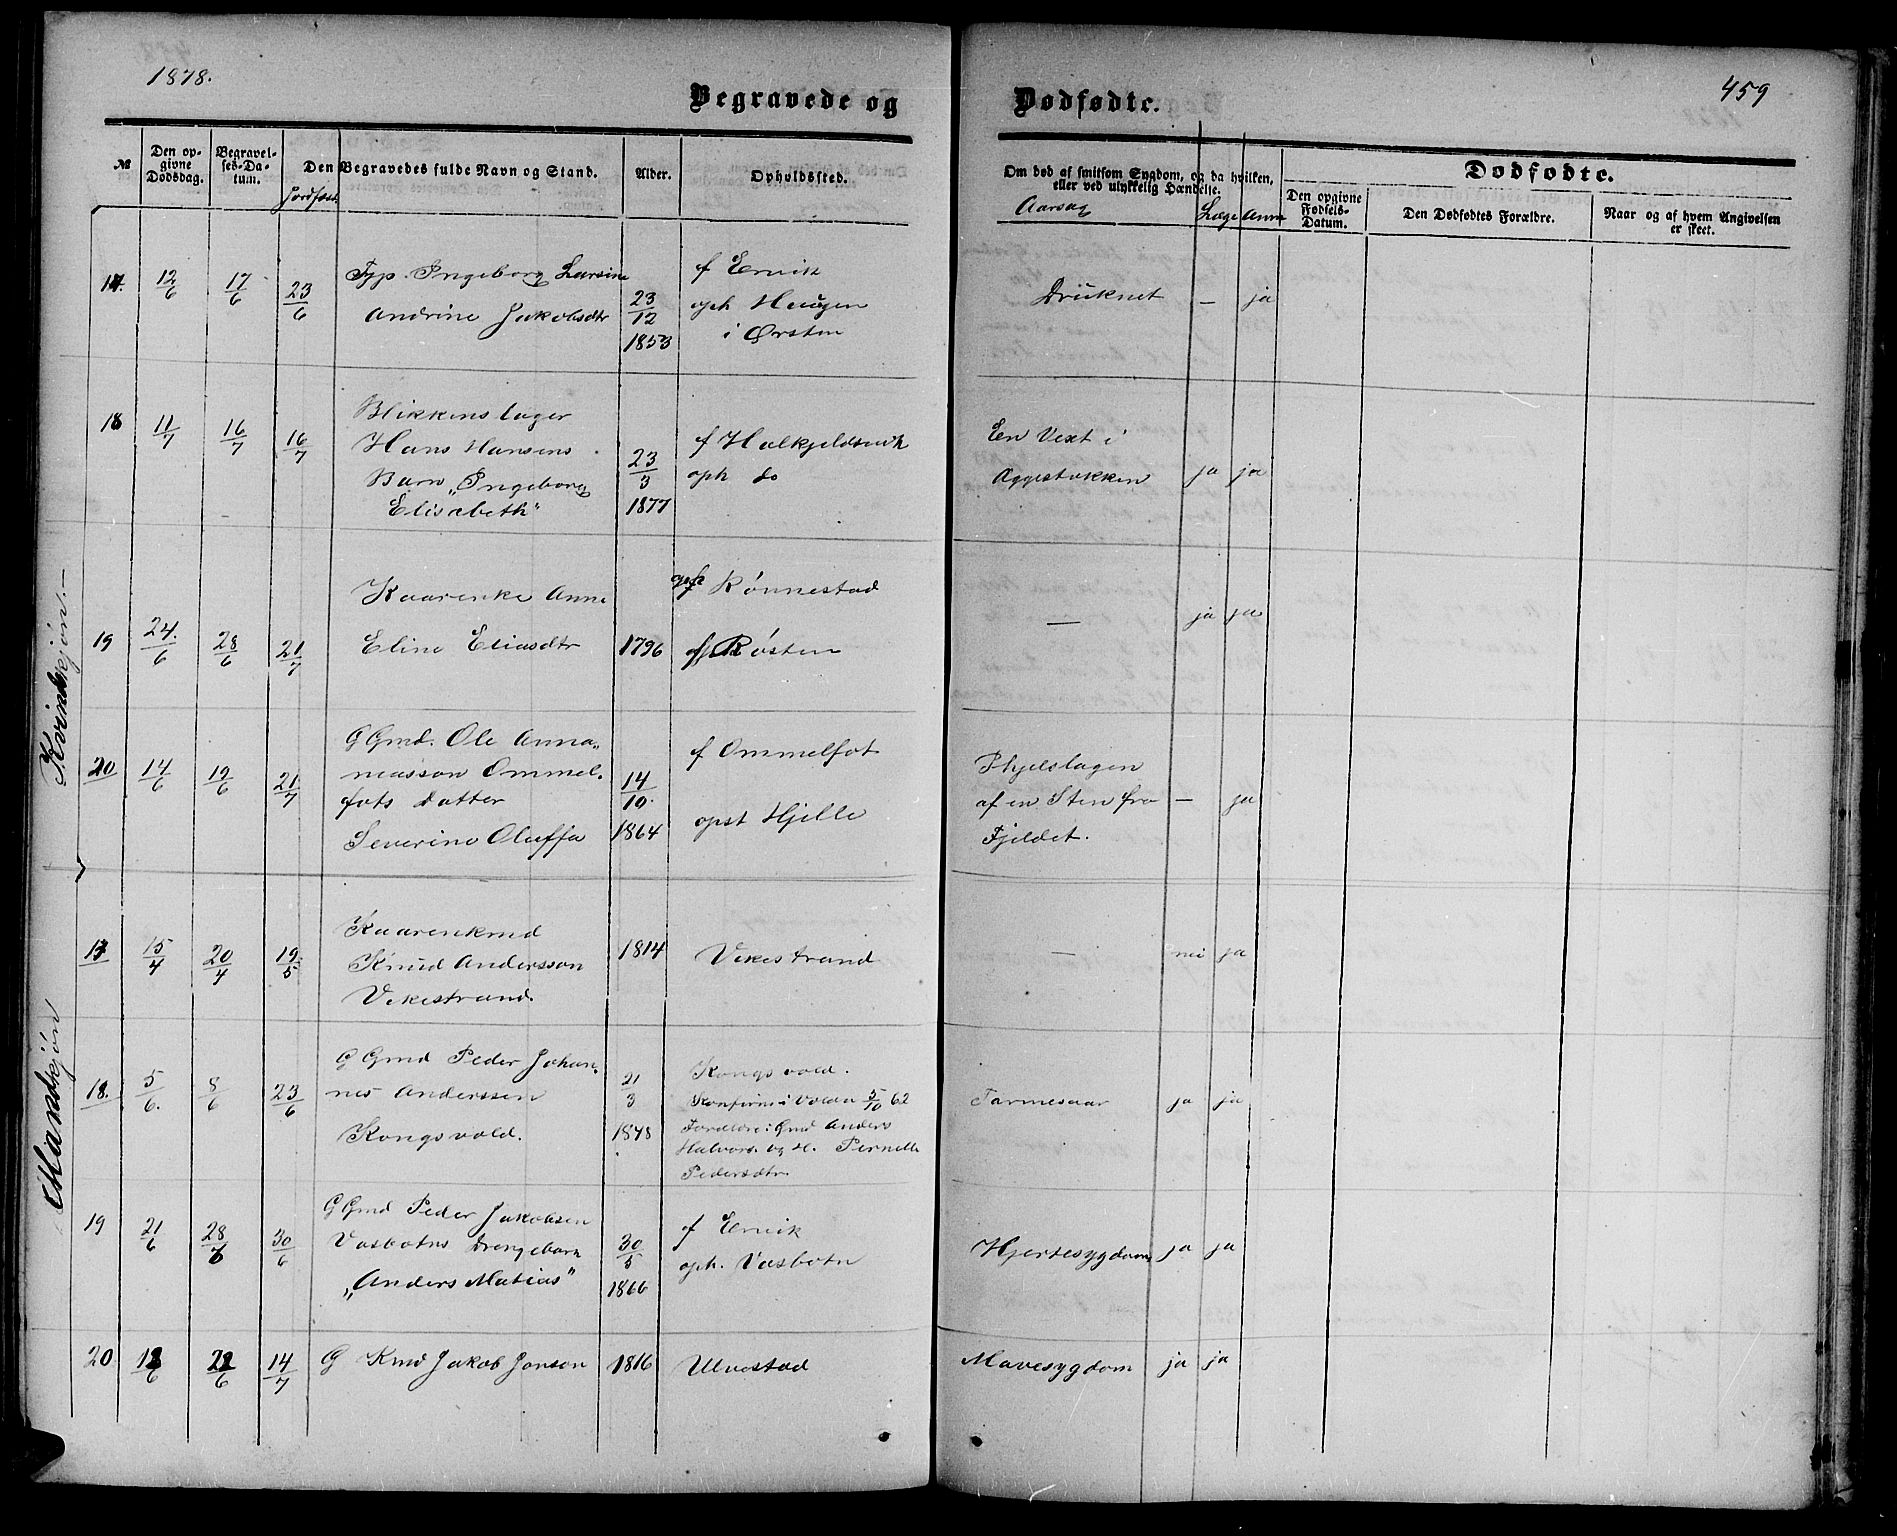 1878.
459
Begravede og Dødfødte.
№
Den opgivne Dødsdag.
Begravelses-Datum.
Jordfæst.
Den Begravedes fulde Navn og Stand.
Alder.
Opholdssted.
Om død af smitsom Sygdom, og da hvilken, eller ved ulykkelig Hændelse.
Aarsag
Læge
Anm
Dødfødte.
Den opgivne Fødsels-Datum.
Den Dødfødtes Forældre.
Naar og af hvem Angivelsen er skeet.
Kvindkjøn.—
17. 12/6 17/6 23/6
Ingeborg Larsine
Andrine Jakobsdtr
23/12 1853
f Ervik
oph Haugen
i Ørsten
Druknet — ja
18 11/7 16/7 16/7
Blikkenslager
Hans Hansens
Barn „Ingeborg
Elisabeth"
23/3 1877
f Holkjeldsvik
oph do
En Vext i
Ryggestukken ja ja
19 24/6 28/6 21/7
Kaarenke Anne
Eline Eliasdtr
1796
oph Rönnestad
f Røsten
— ja ja
20 14/6 19/6 21/7
G Gmd. Ole Anna„
niasson Ommel.
fots Datter
Severine Oluffa
14/10. 1864
f Ommelfot
opst Hjelle
Ihjelslagen
af en Sten fra
Fjeldet.
— ja
Mandkjön
17 15/4 20/4 19/5
Kaarenkmd
Knud Andersson
Vikestrand.
1814
Vikestrand
— nei ja
18. 5/6. 8/6 23/6
G Gmd Peder Johan.
nes Anderssen
Kongsvold.
21/3 1848
Kongsvold.
Konfirm i Volden 5/10 62
Forældre: Gmd Anders
Halvors. og H. Pernille
Pedersdtr.
Tarmesaar ja ja
19 21/6 28/6 30/6
G Gmd Peder Jakobsen
Vasbotns Drengebarn
„Anders Matias"
30/5 1866
f Ervik
oph. Vasbotn
Hjertesygdom ja ja
20 18/6 22/6 14/7
G Kmd Jakob Jonson
1816
Ulvestad
Mavesygdom ja ja